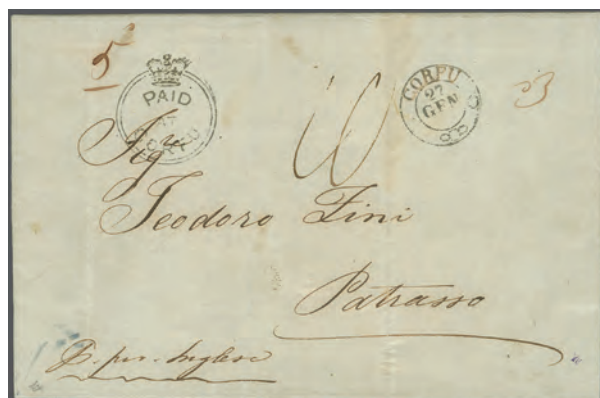 5
PAID
AT
CORFU
CORFU
27
GEN
Sig
Teodoro Zini
Patrasso
P. per. Inglese